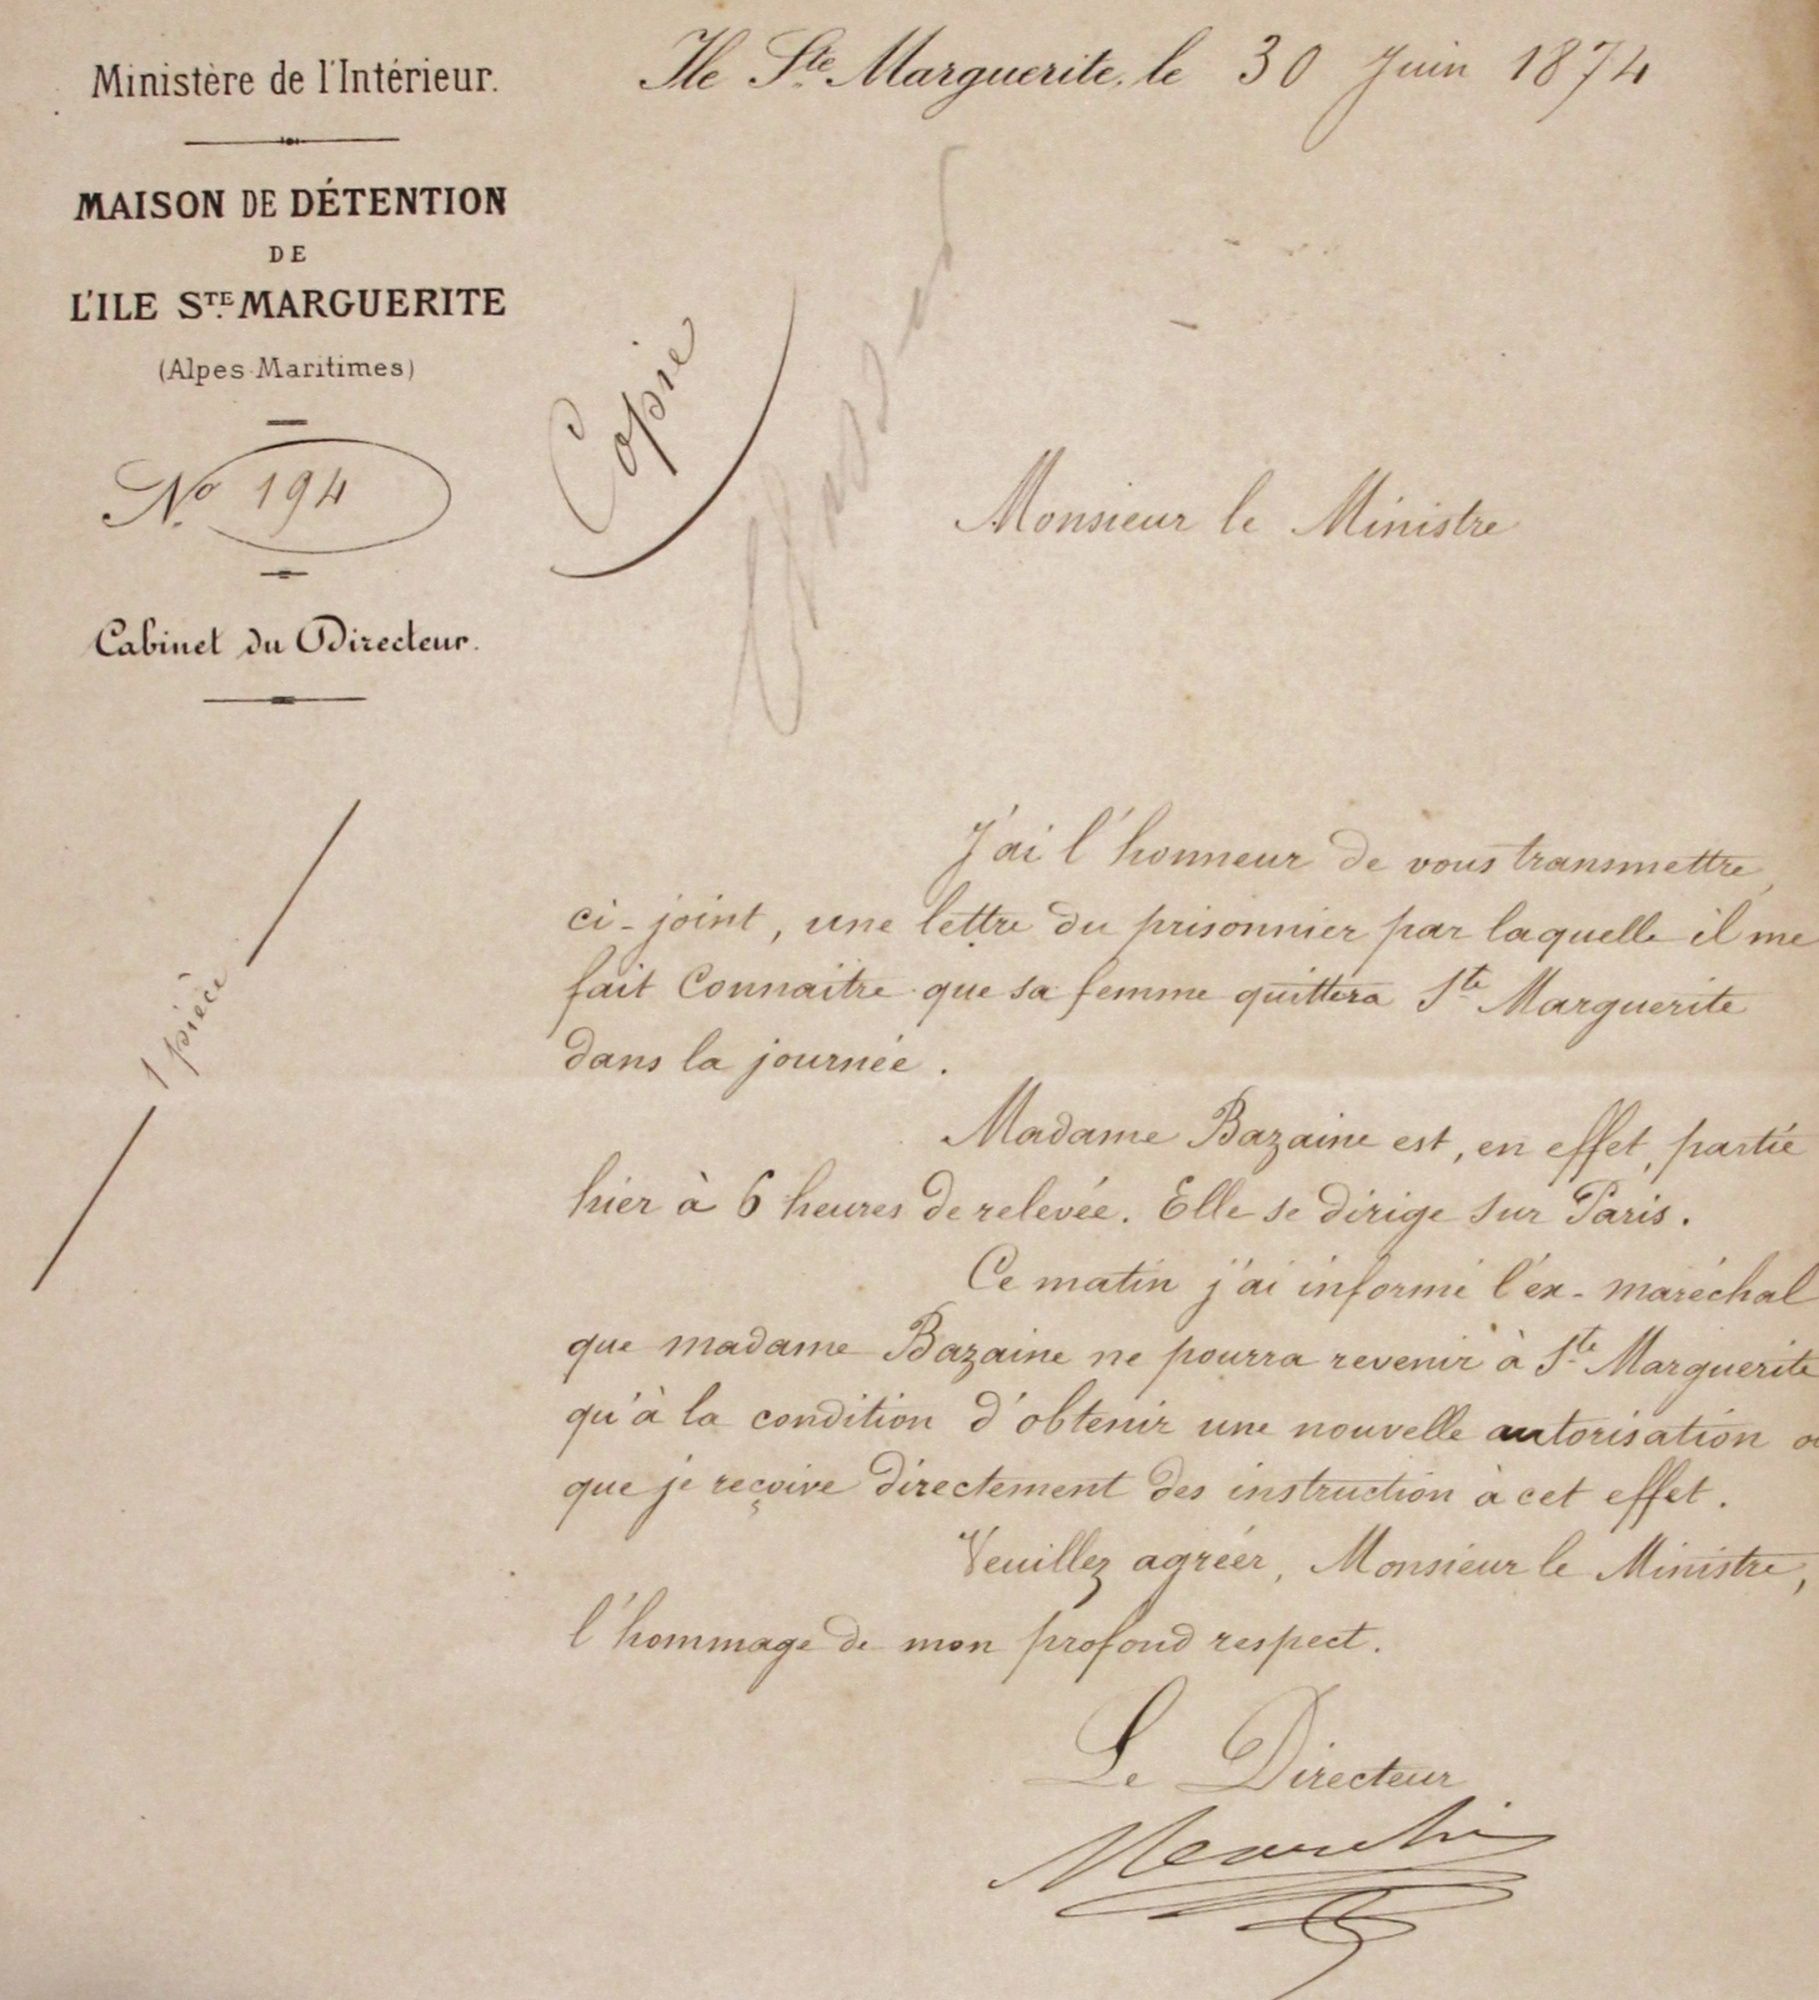 Ministère de l'Intérieur.
MAISON DE DÉTENTION
DE
L'ILE STE MARGUERITE
(Alpes-Maritimes)
No 194
Cabinet du Directeur.
Ile Ste Marguerite, le 30 Juin 1874
Copie
Monsieur le Ministre
1 pièce
J'ai l'honneur de vous transmettre,
ci-joint, une lettre du prisonnier par laquelle il me
fait Connaitre que sa femme quittera Ste Marguerite
dans la journée.
Madame Bazaine est, en effet, partie
hier à 6 heures de relevée. Elle se dirige sur Paris.
Ce matin j'ai informé l'ex-maréchal
que madame Bazaine ne pourra revenir à Ste Marguerite
qu'à la condition d'obtenir une nouvelle autorisation
que je reçoive directement des instruction à cet effet.
Veuillez agréer, Monsieur le Ministre,
l'hommage de mon profond respect.
Le Directeur